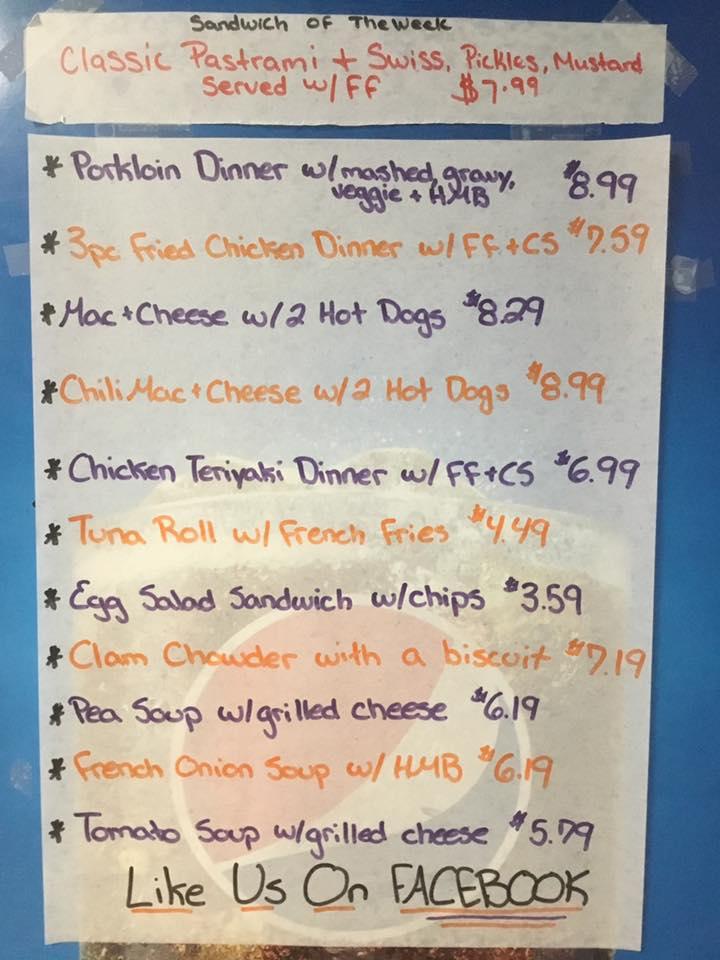 Sandwich of The Week
Classic Pastrami + Swiss, Pickles, Mustard
Served w/ FF $7.99
* Porkloin Dinner w/mashed, gravy, $8.99
veggie + HMB
* 3pc Fried Chicken Dinner w/ FF+CS $7.59
* Mac+Cheese w/2 Hot Dogs $8.29
* Chili Mac+Cheese w/2 Hot Dogs $8.99
* Chicken Teriyaki Dinner w/ FF+CS $6.99
* Tuna Roll w/ French Fries $4.49
* Egg Salad Sandwich w/chips $3.59
* Clam Chowder with a biscuit $7.19
* Pea Soup w/grilled cheese $6.19
* French Onion Soup w/ HMB $6.19
* Tomato Soup w/grilled cheese $5.79
Like Us On FACEBOOK